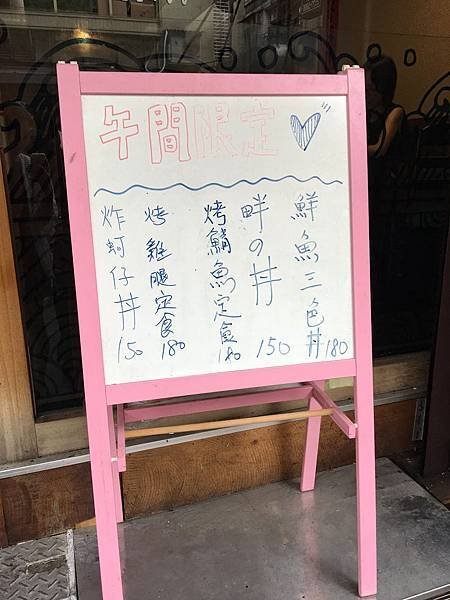 午間限定
鮮魚三色丼 180
畔の丼 150
烤鯖魚定食 180
烤雞腿定食 180
炸蚵仔丼 150